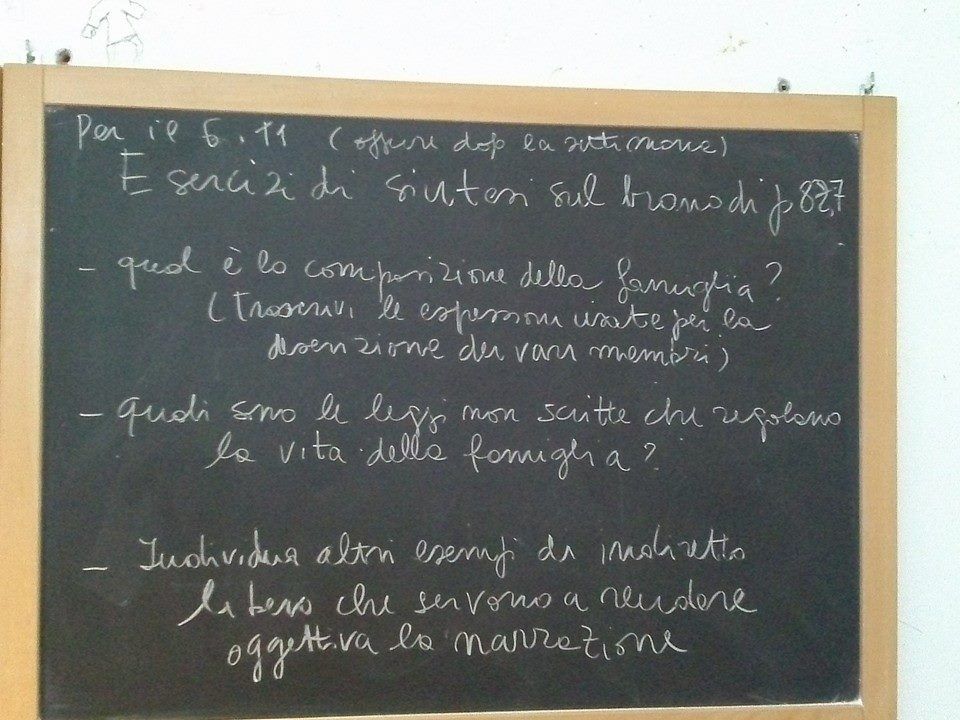 Per il 6.11 (oppure dop la settimana)
Esercizi di sintesi sul brano di p 827
- qual è la composizione della famiglia?
(Trascrivi le espressioni usate per la
descrizione dei vari membri)
- quali sono le leggi non scritte che regolano
la vita della famiglia?
- Individua altri esempi di indiretto
libero che servono a rendere
oggettiva la narrazione